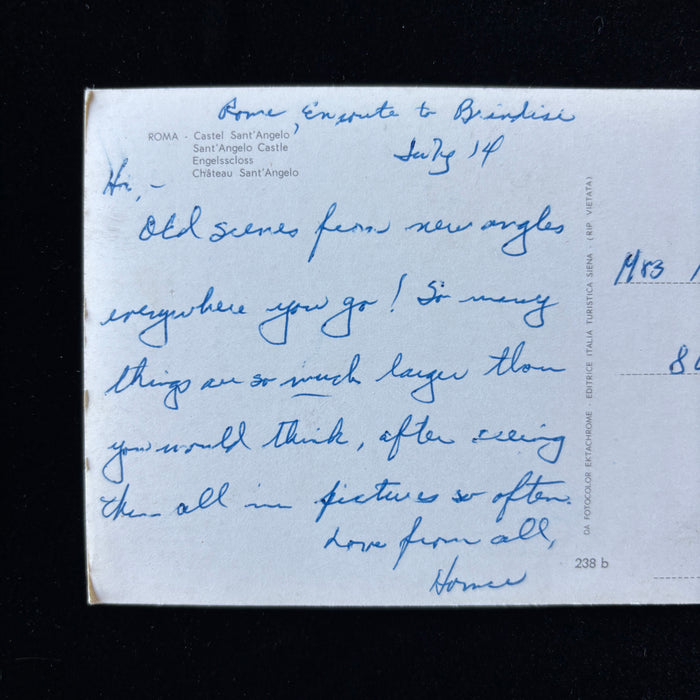 Rome, Enroute to Brindisi
July 14
ROMA - Castel Sant'Angelo
Sant'Angelo Castle
Engelsscloss
Château Sant'Angelo
Hi,-
Old scenes from new angles
everywhere you go! So many
things are so much larger than
you would think, after seeing
them all in pictures so often.
Love from all,
238 b
DA FOTOCOLOR EKTACHROME - EDITRICE ITALIA TURISTICA SIENA - (RIP. VIETATA)
Mrs